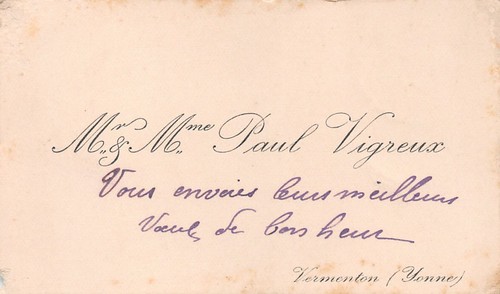 Mr & Mme Paul Vigreux
Vous envoies leurs meilleurs
Vœux de bonheur
Vermenton (Yonne)